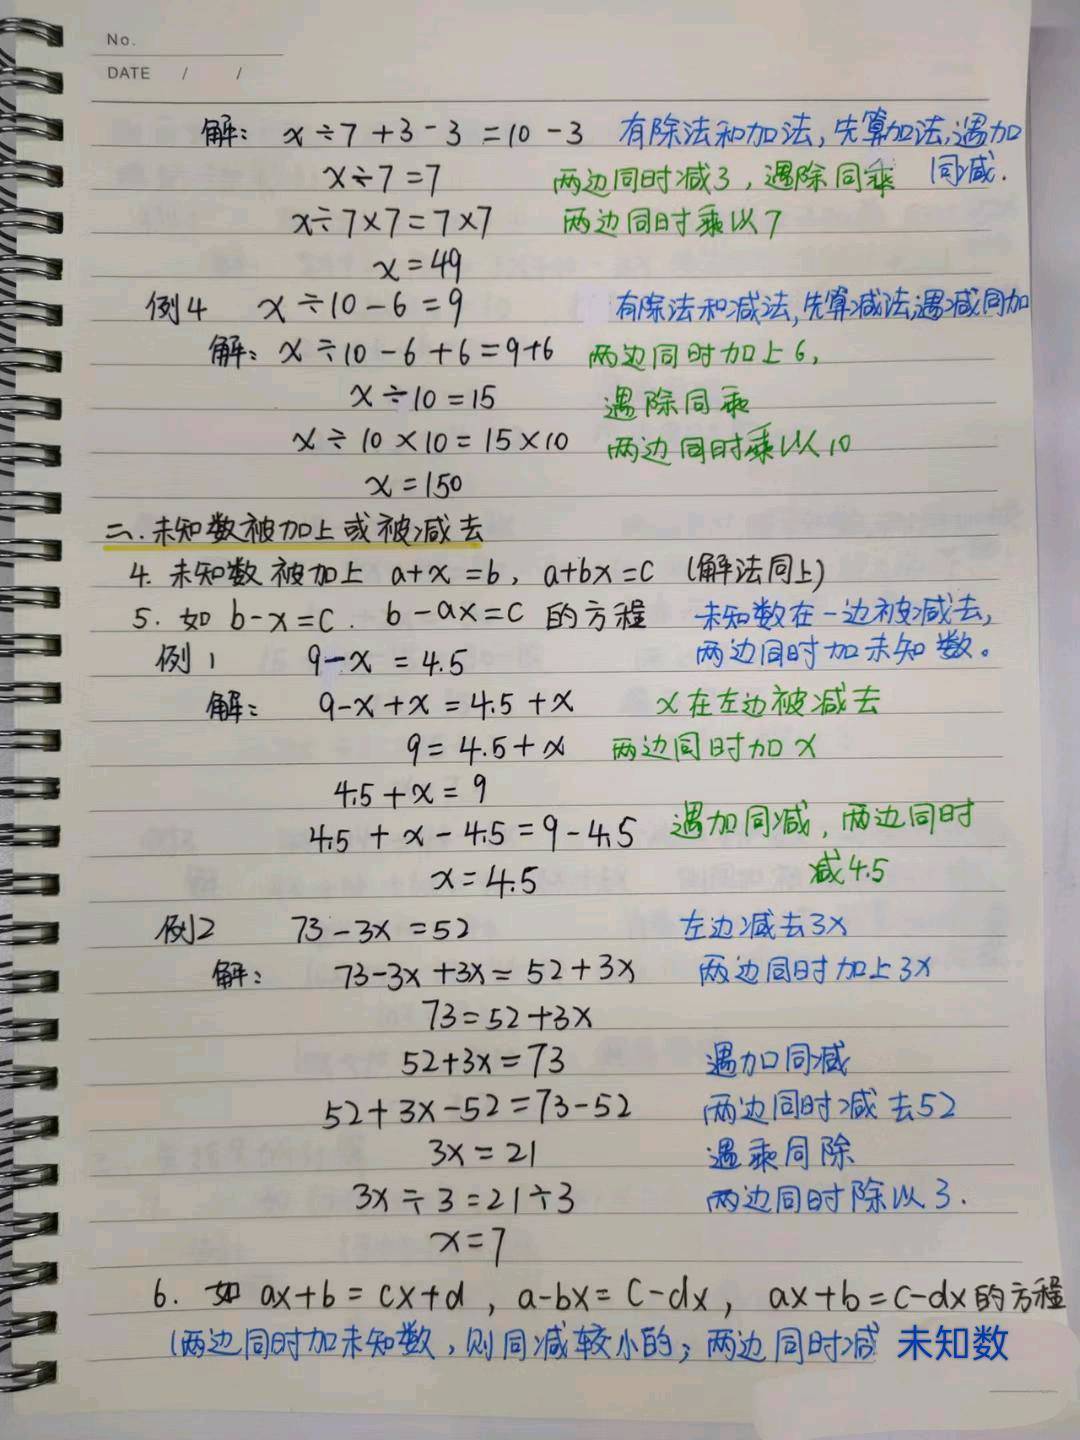 No.
DATE / /
解: x÷7+3-3=10-3 有除法和加法,先算加法,遇加
x÷7=7 两边同时减3,遇除同乘 同减.
x÷7×7=7×7 两边同时乘以7
x=49
例4 x÷10-6=9 有除法和减法,先算减法,遇减同加
解: x÷10-6+6=9+6 两边同时加上6,
x÷10=15 遇除同乘
x÷10×10=15×10 两边同时乘以10
x=150
二.未知数被加上或被减去
4. 未知数被加上 a+x=b, a+bx=c (解法同上)
5. 如 b-x=c. b-ax=c 的方程 未知数在一边被减去,
例1 9-x=4.5 两边同时加未知数。
解: 9-x+x=4.5+x x在左边被减去
9=4.5+x 两边同时加x
4.5+x=9
4.5+x-4.5=9-4.5 遇加同减,两边同时
x=4.5 减4.5
例2 73-3x=52 左边减去3x
解: 73-3x+3x=52+3x 两边同时加上3x
73=52+3x
52+3x=73 遇加同减
52+3x-52=73-52 两边同时减去52
3x=21 遇乘同除
3x÷3=21÷3 两边同时除以3.
x=7
6. 如 ax+b=cx+d, a-bx=c-dx, ax+b=c-dx的方程
(两边同时加未知数,则同减较小的;两边同时减 未知数